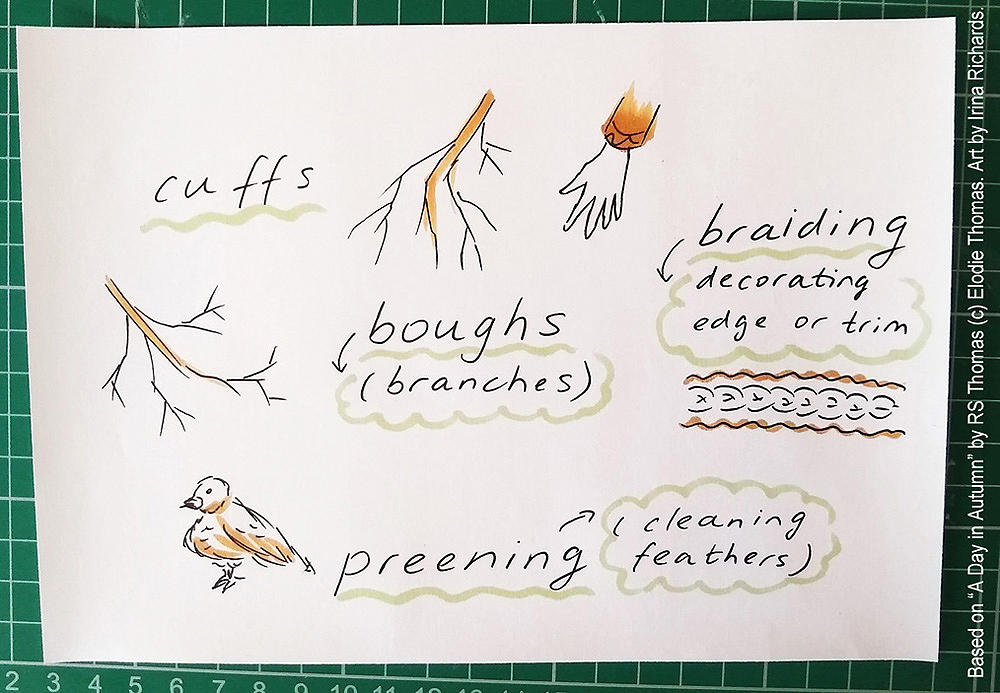 cuffs
braiding
decorating
edge or trim
boughs
(branches)
preening
(cleaning
feathers)
2 3 4 5 6 7 8 9 10 11 12 13 14 15
Based on "A Day in Autumn" by RS Thomas (c) Elodie Thomas. Art by Irina Richards.